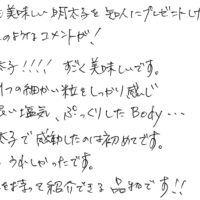 美味しい明太子を知人にプレゼントした
のようなコメントが!
太子!!!! すごく美味しいです。
1つの細かい粒をしっかり感じ
良い塩気、ぷっくりしたBody…
太子で感動したのは初めてです。
うれしかったです。
を持って紹介できる品物です!!